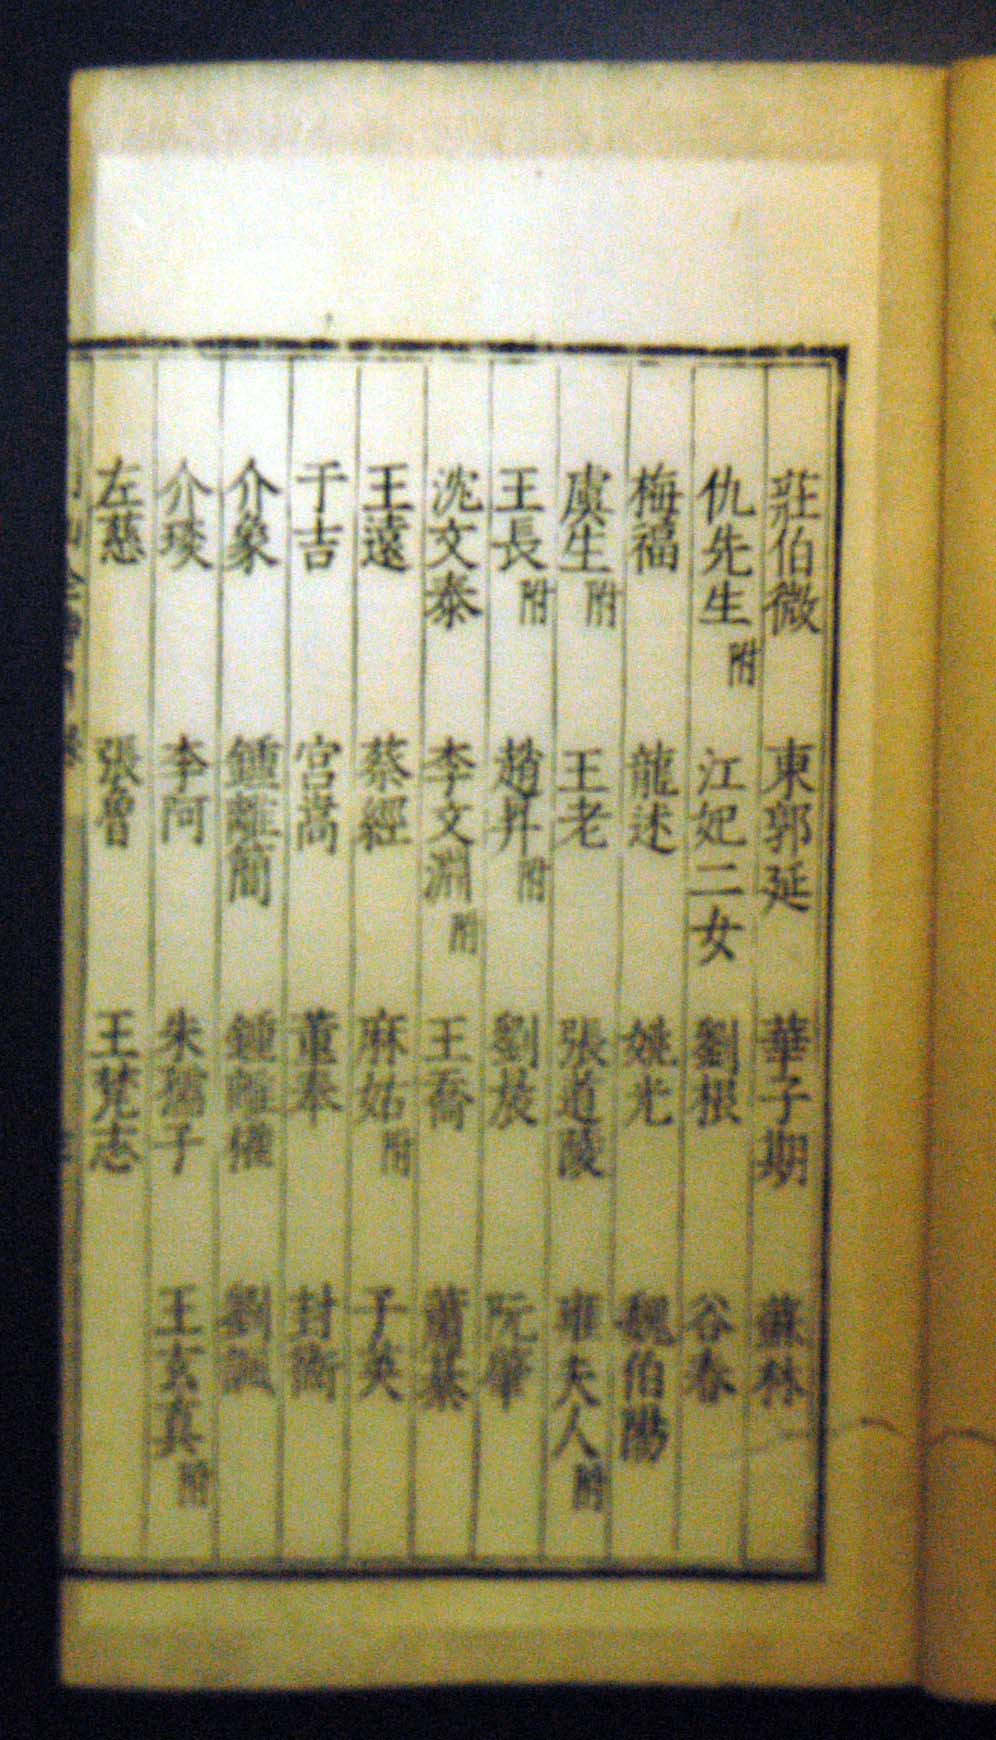 莊伯微 東郭延 華子期 蘇林
仇先生附 江妃二女 劉根 谷春
梅福 龍述 姚光 魏伯陽
虞生附 王老 張道陵 雍夫人附
王長附 趙昇附 劉晨 阮肇
沈文泰 李文淵附 王喬 蕭綦
王遠 蔡經 麻姑附 子英
于吉 宮嵩 董奉 封衡
介象 鍾離簡 鍾離權 劉諷
介琰 李阿 朱孺子 王玄真附
左慈 張魯 王梵志